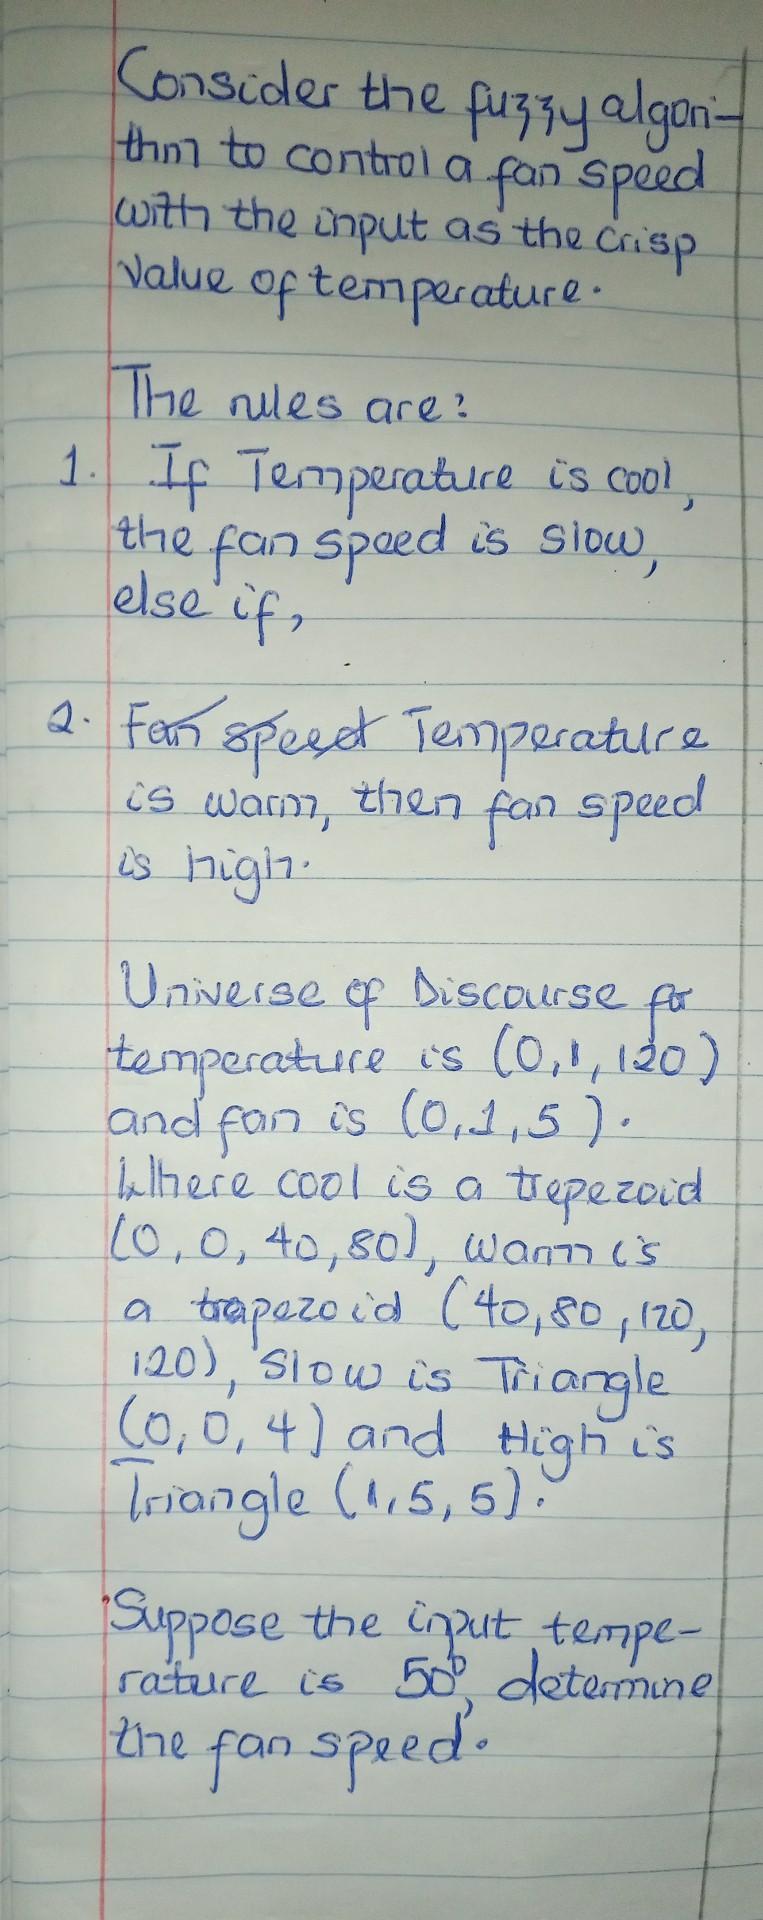 Consider the fuzzy algori-
thm to control a fan speed
with the input as the crisp
value of temperature.
The rules are:
1. If Temperature is cool,
the fan speed is slow,
else if,
2. Fan speed Temperature
is warm, then fan speed
is high.
Universe of Discourse for
temperature is (0,1,120)
and fan is (0,1,5).
Where cool is a trepezoid
(0,0,40,80), warm is
a trapezoid (40,80,120,
120), Slow is Triangle
(0,0,4) and High is
Triangle (1,5,5).
Suppose the input tempe-
rature is 50°, determine
the fan speed.